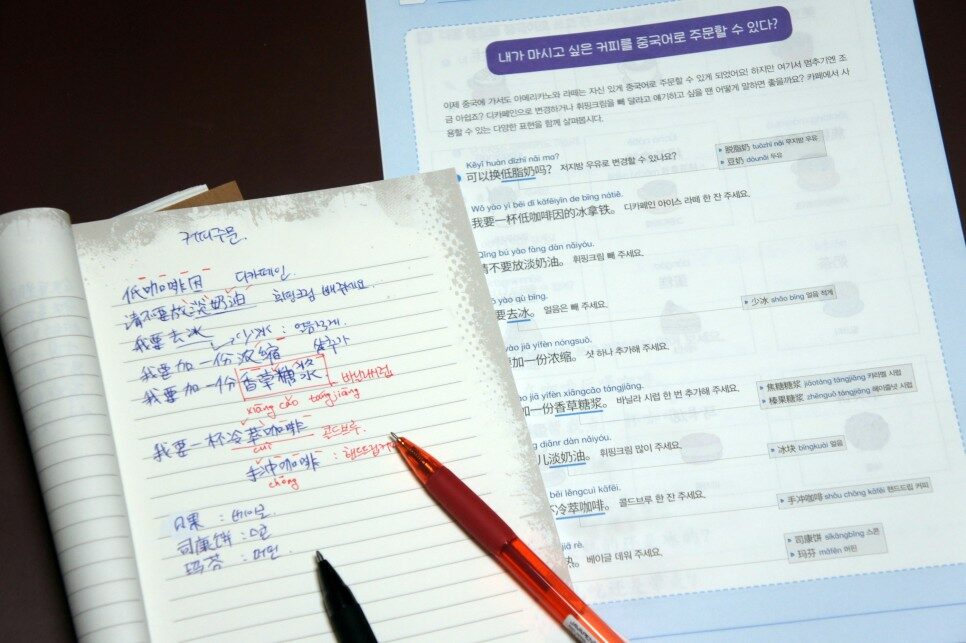 커피주문.
低咖啡因 디카페인.
请不要放淡奶油 휘핑크림 빼주세요.
我要去冰 少冰 : 얼음적게.
我要加一份浓缩 샷추가
我要加一份香草糖浆 바닐라시럽
xiāng cǎo táng jiāng
我要一杯冷萃咖啡 콜드브루.
cuì
手冲咖啡 :
chōng
贝果 : 베이글
司康饼 : 스콘
玛芬 : 머핀
내가 마시고 싶은 커피를 중국어로 주문할 수 있다?
이제 중국에 가서도 아메리카노와 라떼는 자신 있게 중국어로 주문할 수 있게 되었어요! 하지만 여기서 멈추기엔 조
금 아쉽죠? 디카페인으로 변경하거나 휘핑크림을 빼 달라고 얘기하고 싶을 땐 어떻게 말하면 좋을까요? 카페에서 사
용할 수 있는 다양한 표현을 함께 살펴봅시다.
Kěyǐ huàn dīzhī nǎi ma?
可以换低脂奶吗? 저지방 우유로 변경할 수 있나요?
脱脂奶 tuōzhī nǎi 무지방 우유
豆奶 dòunǎi 두유
Wǒ yào yì bēi dī kāfēiyīn de bīng nátiě.
我要一杯低咖啡因的冰拿铁。 디카페인 아이스 라떼 한 잔 주세요.
Qǐng bú yào fàng dàn nǎiyóu.
请不要放淡奶油。 휘핑크림 빼 주세요.
yào qù bīng.
要去冰。 얼음은 빼 주세요.
少冰 shǎo bīng 얼음 적게
yào jiā yífèn nóngsuō.
要加一份浓缩。 샷 하나 추가해 주세요.
jiā yífèn xiāngcǎo tángjiāng.
加一份香草糖浆。 바닐라 시럽 한 번 추가해 주세요.
焦糖糖浆 jiāotáng tángjiāng 카라멜 시럽
榛果糖浆 zhēnguǒ tángjiāng 헤이즐넛 시럽
diǎnr dàn nǎiyóu.
儿淡奶油。 휘핑크림 많이 주세요.
冰块 bīngkuài 얼음
bēi lěngcuì kāfēi.
冷萃咖啡。 콜드브루 한 잔 주세요.
手冲咖啡 shǒu chōng kāfēi 핸드드립 커피
jiā rè.
热。 베이글 데워 주세요.
司康饼 sīkāngbǐng 스콘
玛芬 mǎfēn 머핀